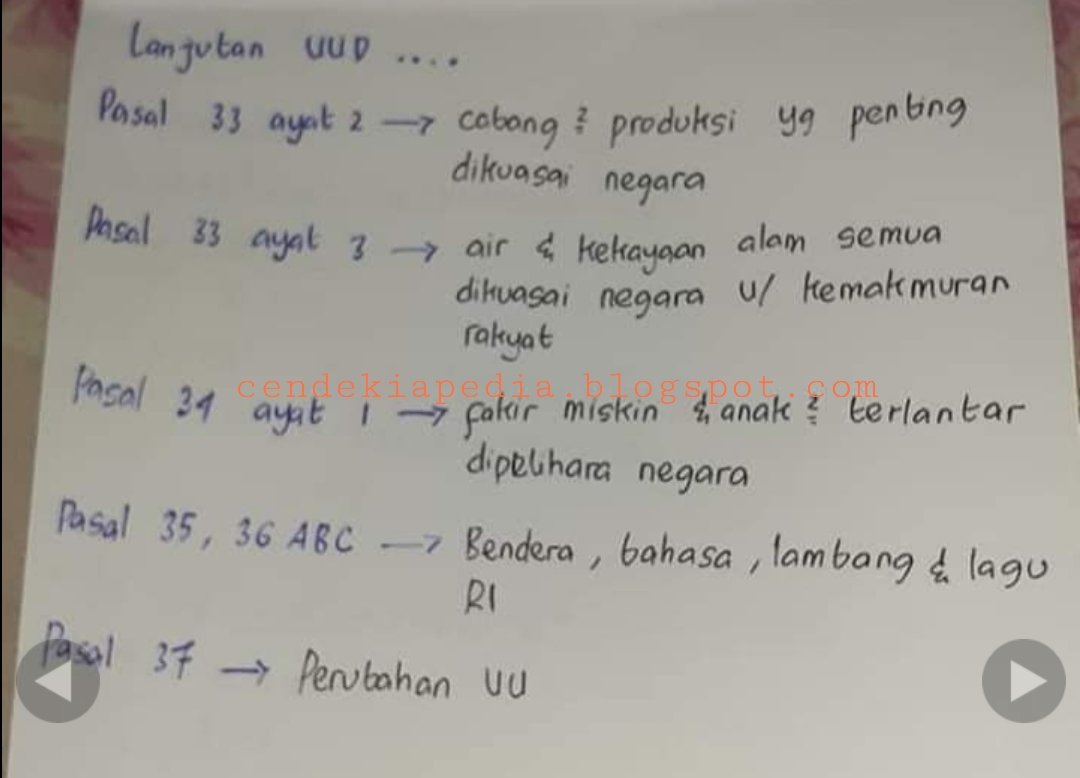 Lanjutan UUD ....
Pasal 33 ayat 2 → cabang ² produksi yg penting
dikuasai negara
Pasal 33 ayat 3 → air & kekayaan alam semua
dikuasai negara u/ kemakmuran
rakyat
cendekiapedia.blogspot.com
Pasal 34 ayat 1 → fakir miskin & anak ² terlantar
dipelihara negara
Pasal 35, 36 ABC → Bendera, bahasa, lambang & lagu
RI
Pasal 37 → Perubahan UU